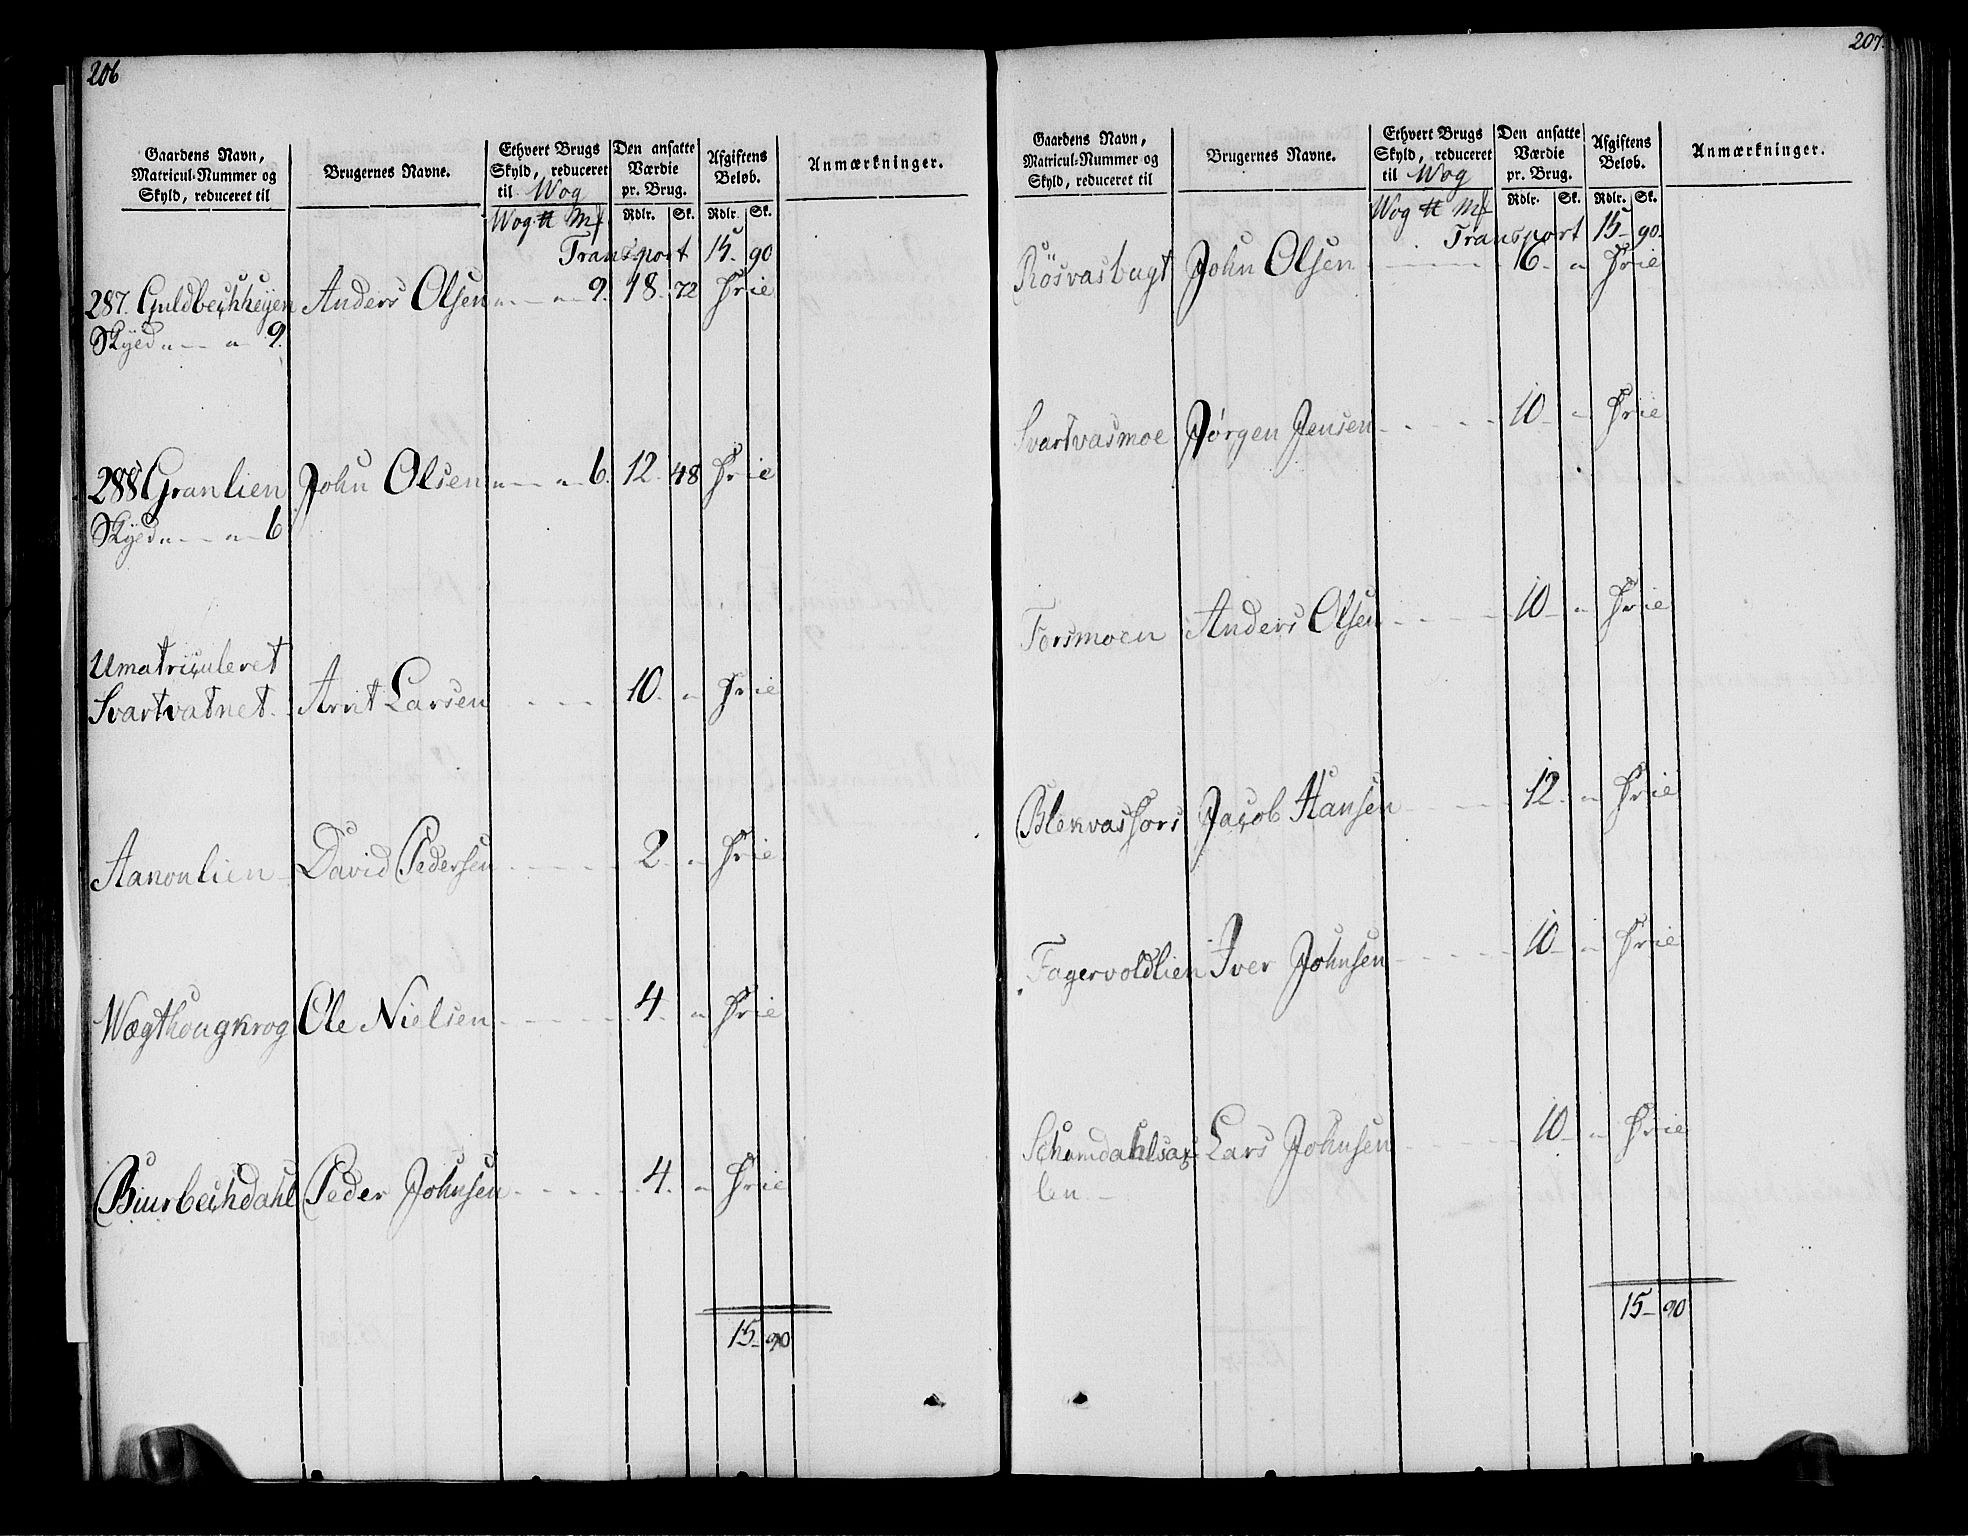 206
Gaardens Navn, Matricul-Nummer og Skyld, reduceret til | Brugernes Navne. | Ethvert Brugs Skyld, reduceret til Wog | Den ansatte Værdie pr. Brug. | Afgiftens Beløb. | Anmærkninger.
Wog ℔ Mk | Rdlr. | Sk. | Rdlr. | Sk.
Transport 15 - 90
287. Guldbechheyen Anders Olsen " - - " - 9. 18. 72 Frie
Skyed " - - " - 9.
288 Granlien John Olsen " - - " - 6. 12. 48 Frie
Skyed " - - " - 6
Umatriculeret
Svartvatnet. Arnt Larsen - - - 10. " Frie
Aanonlien David Pedersen - - - - 2 - " Frie
Wægthougkrog Ole Nielsen - - - - 4. " Frie
Biurbechdahl Peder Johnsen - - - - 4. " Frie
15 - 90
207.
Gaardens Navn, Matricul-Nummer og Skyld, reduceret til | Brugernes Navne. | Ethvert Brugs Skyld, reduceret til Wog | Den ansatte Værdie pr. Brug. | Afgiftens Beløb. | Anmærkninger.
Wog ℔ Mk | Rdlr. | Sk. | Rdlr. | Sk.
Transport 15 - 90.
Rösvasbugt John Olsen - - - - 16. " Frie
Svartvasmoe Jørgen Jensen - - - - 10 - " Frie
Forsmoen Anders Olsen - - - - 10 - " Frie
Blekvasfors Jacob Hansen - - - - 12. " Frie
Fagervoldlien Iver Johnsen - - - - 10 - " Frie
Schamdahlsax- Lars Johnsen - - - - 10 - " Frie
len -
15 - 90